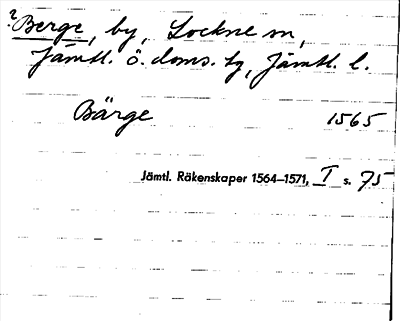 ? Berge, by, Lockne sn,
Jämtl. ö. doms. tg, Jämtl. l.
Bärge 1565
Jämtl. Räkenskaper 1564–1571, I s. 75